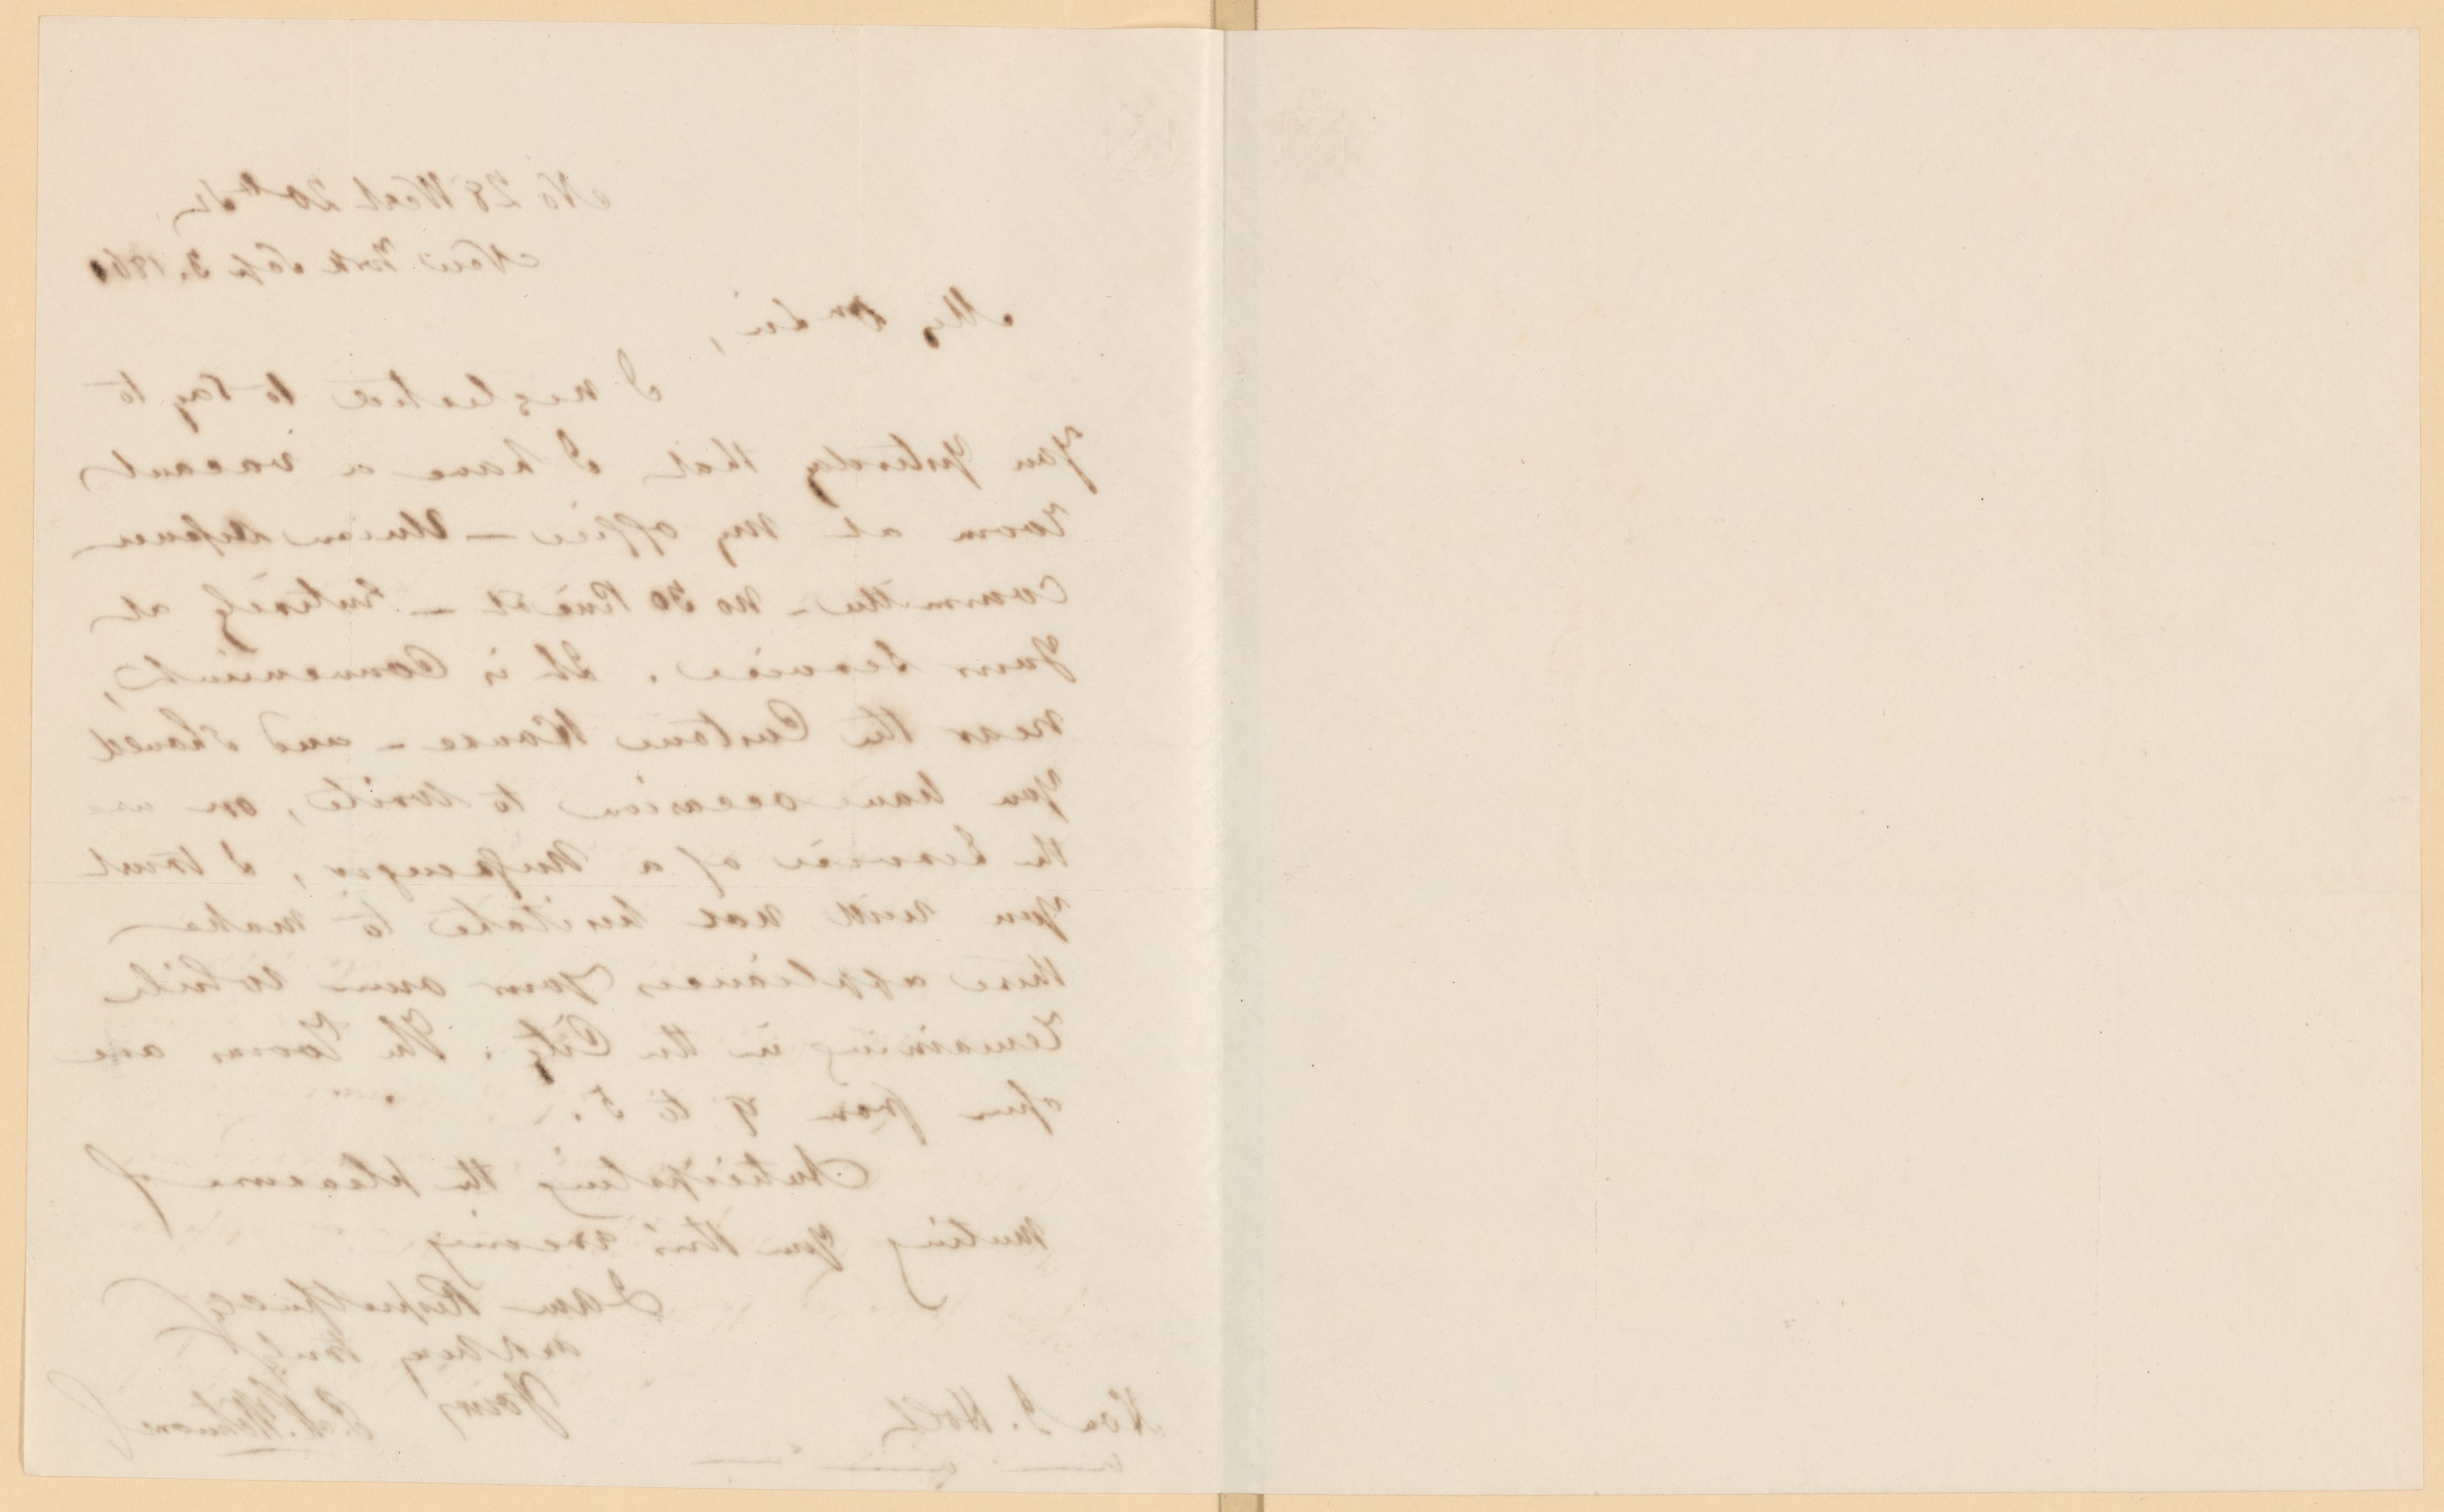 No 28 West 20th St
New York Sep 3. 186
My Dr Sir,
I neglected to say to
you yesterday that I have a vacant
room at my office — Union Defence
Committee — No 30 Pine St — entirely at
your service. It is convenient,
near the Custom House — and should
you have occasion to write, or use
the service of a messenger, I trust
you will not hesitate to make
these appliances your own while
remaining in the City. The rooms are
open from 9 to 5.
Anticipating the pleasure of
meeting you this evening
I am Respectfully
and very truly
Yours
Hon J. Holt
P. M. Wetmore